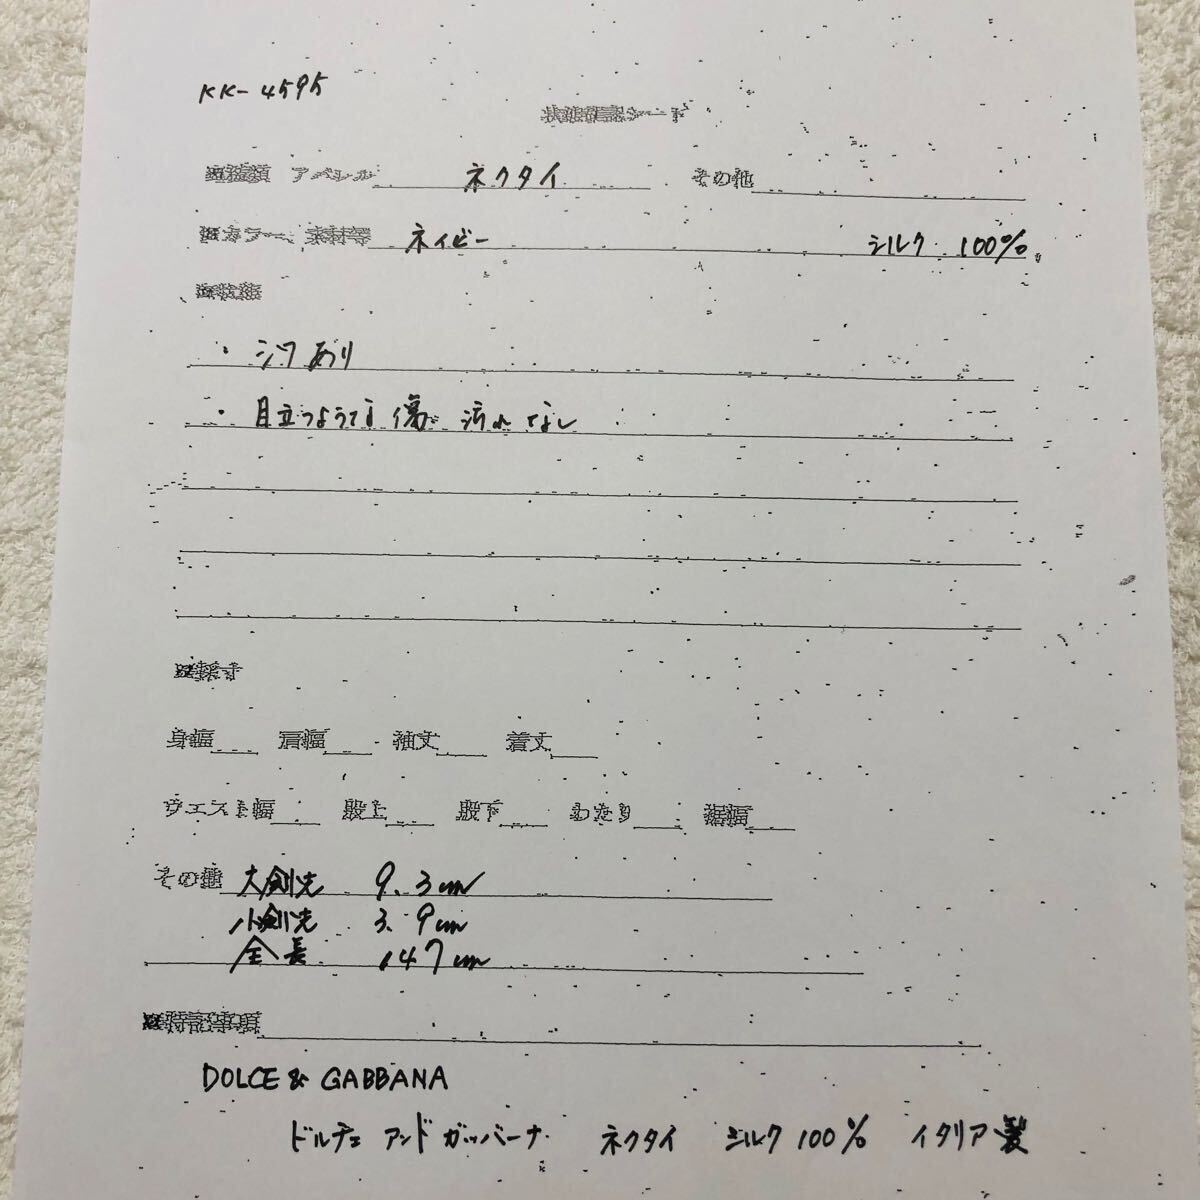 KK-4595
状態確認シート
※種類 アパレル ネクタイ その他
※カラー、素材等 ネイビー シルク 100%
※状態
・シワあり
・目立つような傷、汚れなし
※採寸
身幅 肩幅 袖丈 着丈
ウエスト幅 股上 股下 わたり 裾幅
その他 大剣先 9.3cm
小剣先 3.9cm
全長 147cm
※特記事項
DOLCE & GABBANA
ドルチェ アンド ガッバーナ ネクタイ シルク 100% イタリア製